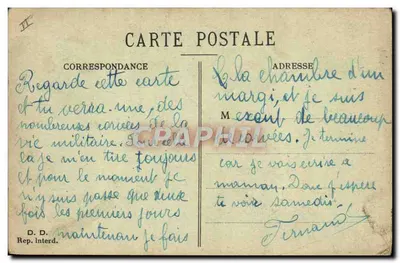 II
CARTE POSTALE
CORRESPONDANCE
Regarde cette carte
et tu verra une, des
nombreuses corvées de la
vie militaire.
la je m'en tire toujours
et pour le moment je
n'y suis passé que deux
fois les premiers jours
maintenan je fais
D. D.
Rep. Interd.
ADRESSE
la chambre d'un
margi, et je suis
M exant de beaucoup
corvées. Je termine
car je vais écrire a
maman. Donc j'espère
te voir samedi.
Fernand